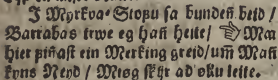 I Myrkva-Stopu sa bundeñ beid /
Barrabas trwe eg hañ heite / ☞ Mañ
hier piñast ein Merking greid / um Mañ
kyns Neyd / Miøg skyr ad oku leite.